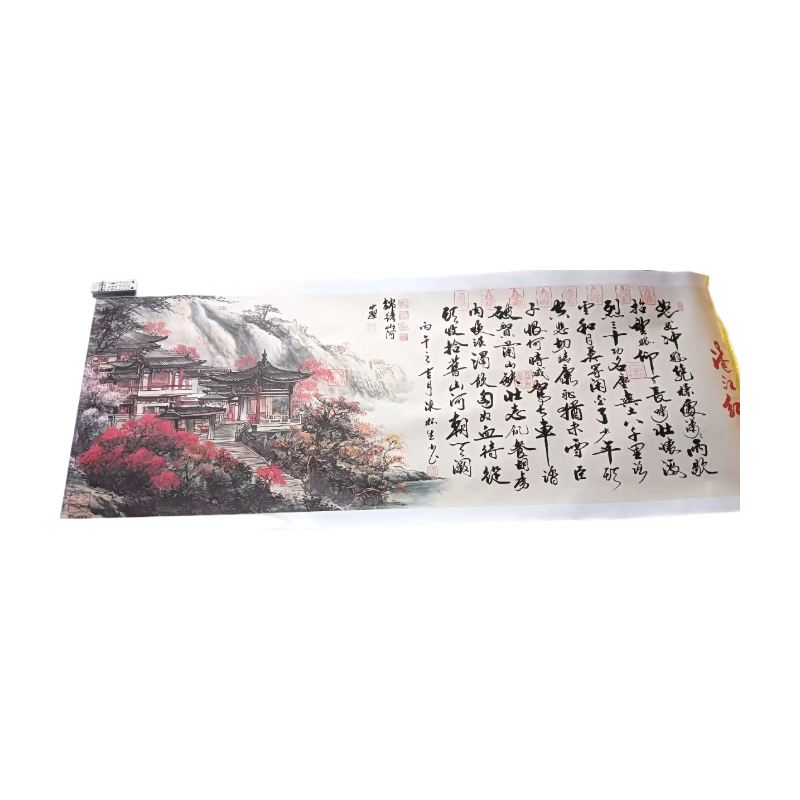 满江红
怒发冲冠凭栏处潇潇雨歇
抬望眼仰天长啸壮怀激
烈三十功名尘与土八千里路
云和月莫等闲白了少年头
空悲切靖康耻犹未雪臣
子恨何时灭驾长车踏
破贺兰山缺壮志饥餐胡虏
肉笑谈渴饮匈奴血待從
頭收拾舊山河朝天阙
丙午之吉月 松生
錦绣山河